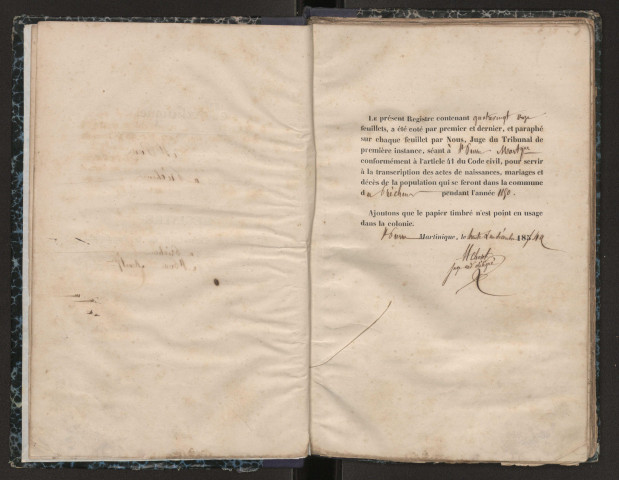 Le présent Registre contenant quatrevingt onze
feuillets, a été coté par premier et dernier, et paraphé
sur chaque feuillet par Nous, Juge du Tribunal de
première instance, séant à St Pierre Martque
conformément à l'article 41 du Code civil, pour servir
à la transcription des actes de naissances, mariages et
décès de la population qui se feront dans la commune
du Prêcheur pendant l'année 1850.
Ajoutons que le papier timbré n'est point en usage
dans la colonie.
St Pierre Martinique, le décembre 18